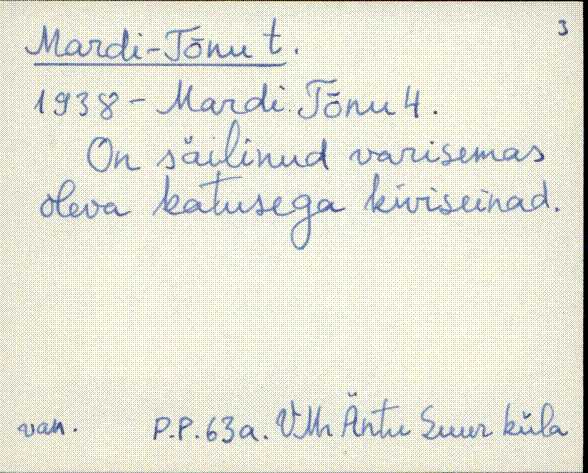 3
Mardi-Tõnu t.
1938 - Mardi Tõnu 4.
On säilinud varisemas
oleva katusega kiviseinad.
van. P.P. 63a. VMr Äntu Suur küla